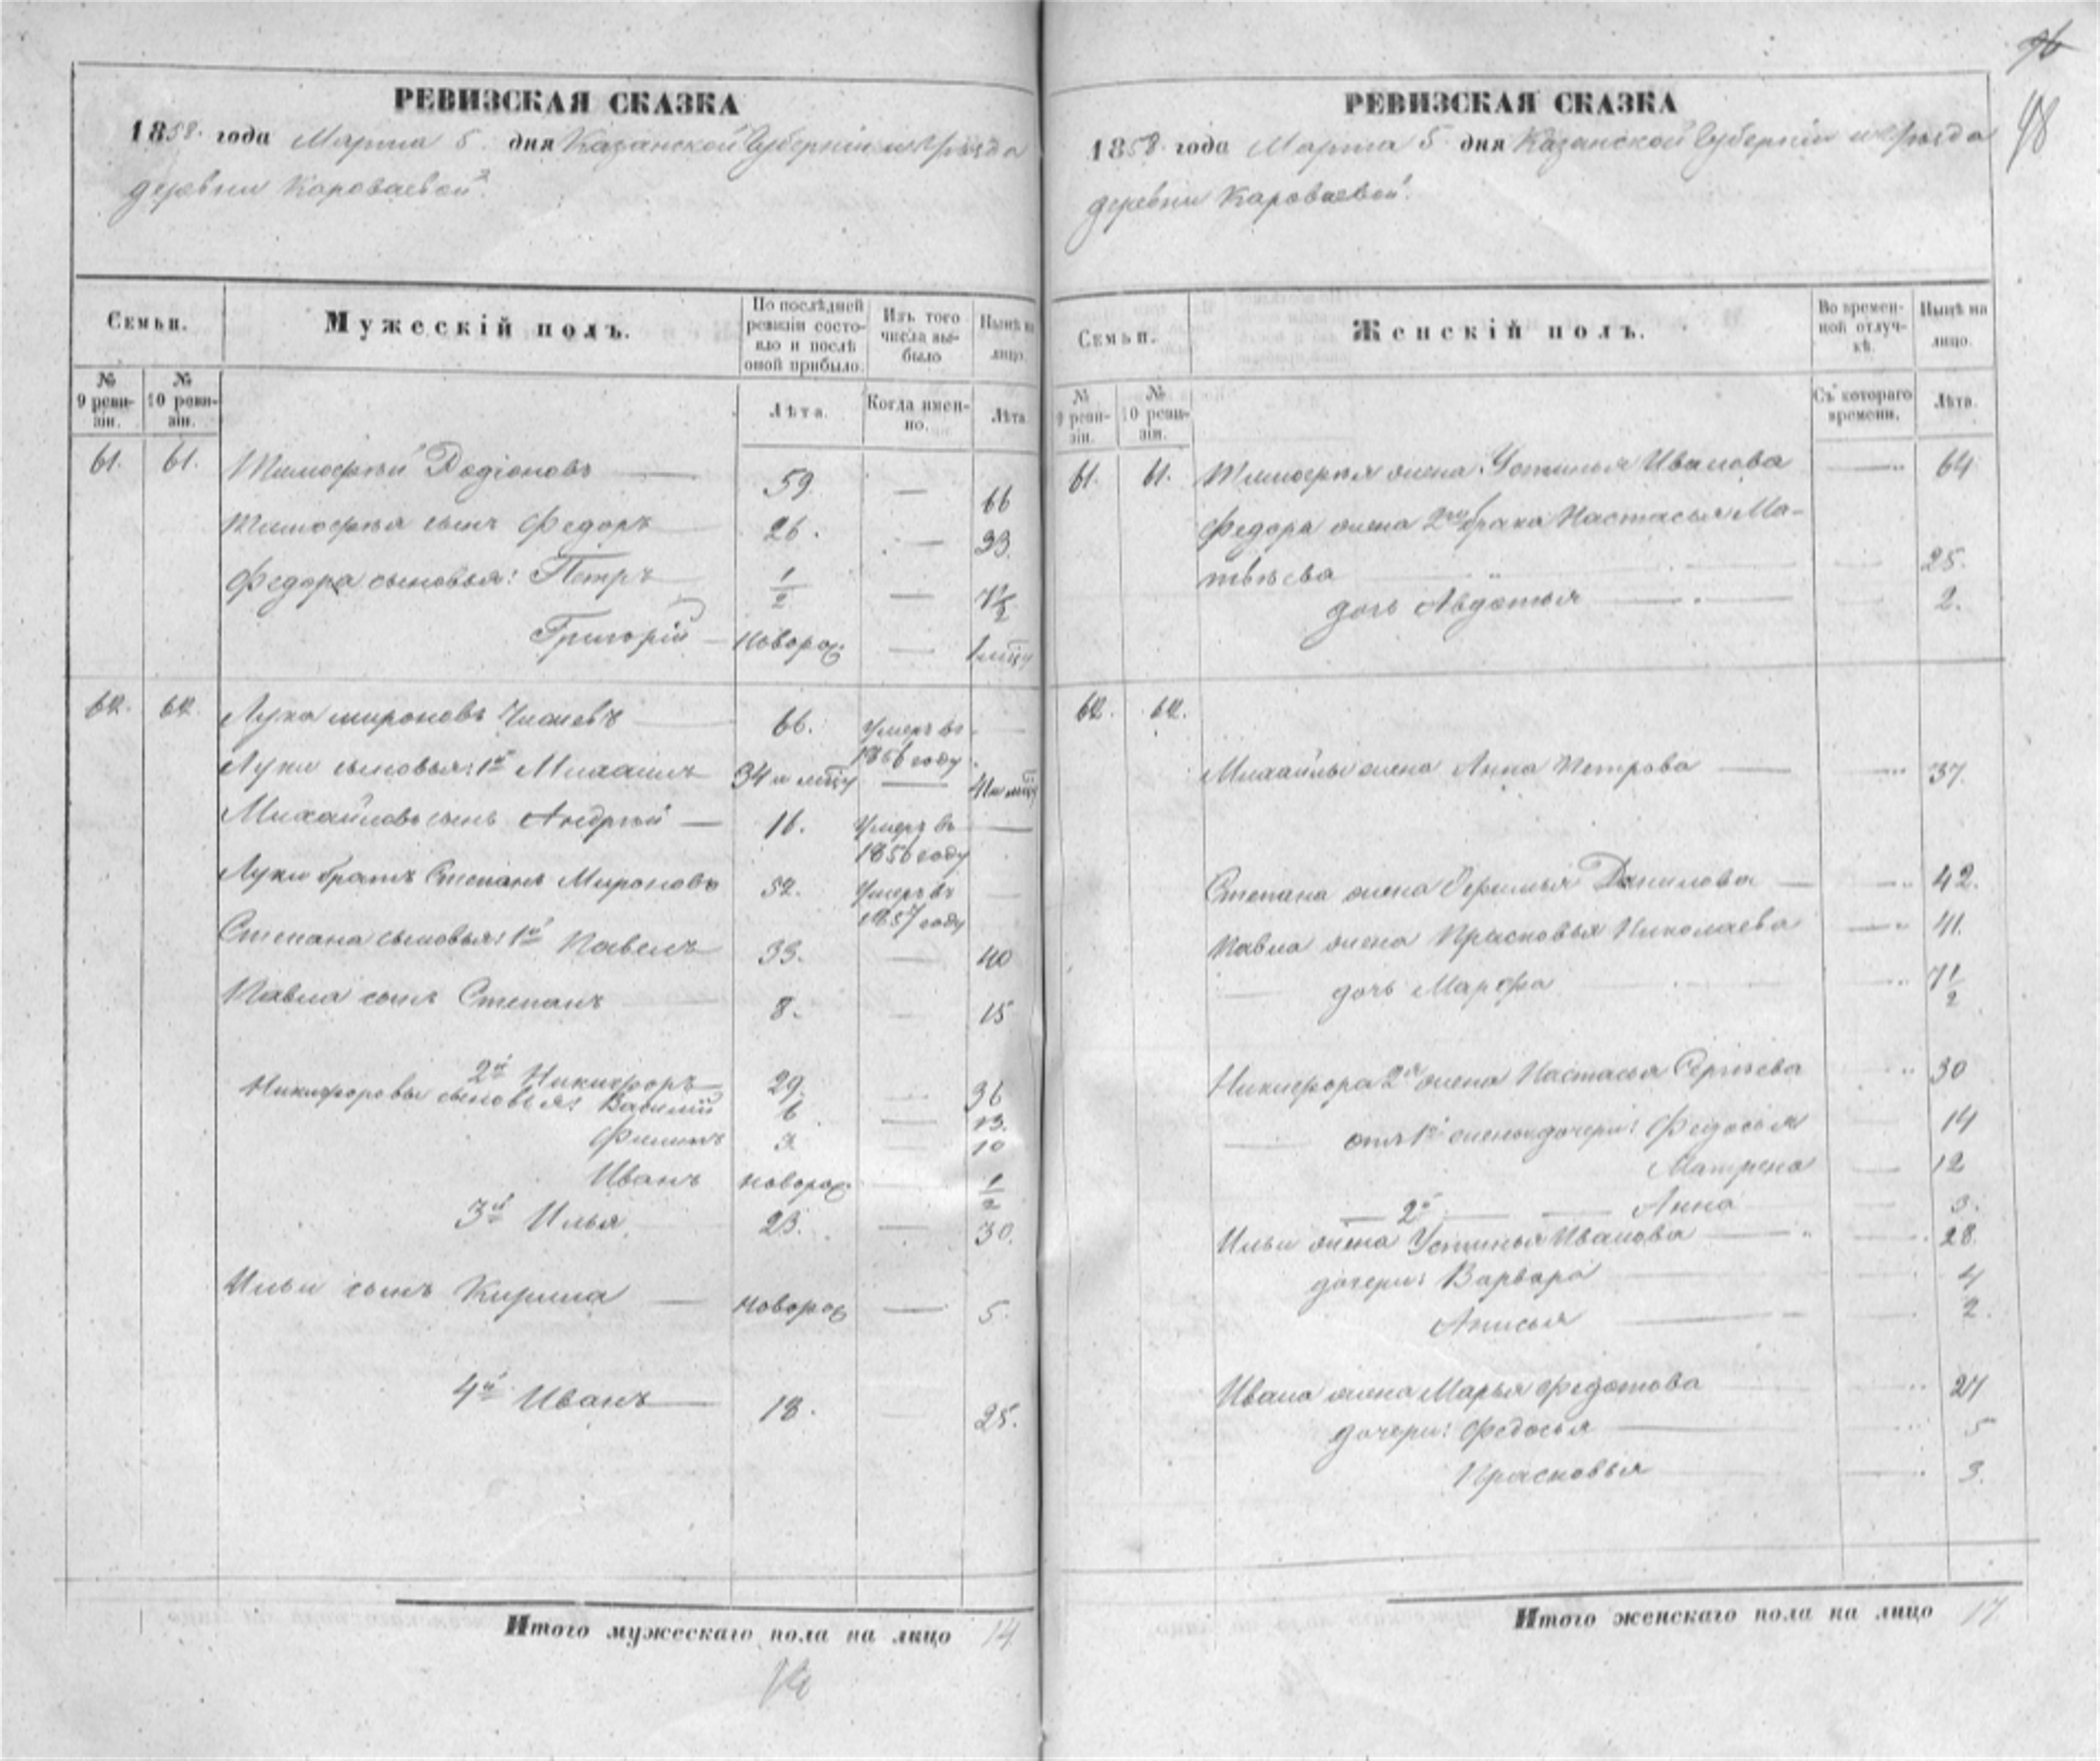 96
98
РЕВИЗСКАЯ СКАЗКА
1858. года Марта 5. дня Казанской Губерніи и Уѣзда
деревни Кароваевой.
Семьи.
Мужескій полъ.
По послѣдней ревизіи состояло и послѣ оной прибыло.
Изъ того числа выбыло
Нынѣ на лицо.
№ 9 ревизіи.
№ 10 ревизіи.
Лѣта.
Когда именно.
Лѣта
61. 61. Тимофѣй Родіоновъ 59 — 66
Тимофѣя сынъ Федоръ 26. — 33.
Федора сыновья: Петръ 1/2 — 7 1/2
Григорій — новорож. — 1 мѣцу
62. 62. Лука Мироновъ 66. Умеръ въ 1856 году —
Луки сыновья: 1й Михаилъ 34 и мѣцу — 41 и мѣц
Михайловъ сынъ Андрѣй — 16. Умеръ въ 1856 году —
Луки братъ Степанъ Мироновъ 52. Умеръ въ 1857 году —
Степана сыновья: 1й Павелъ 33. — 40
Павла сынъ Степанъ 8. — 15
2й Никифоръ 29. — 36
Никифоровы сыновья: Василій 6 — 13.
Филипъ 3 — 10
Иванъ новорож. — 1/2
3й Илья 23. — 30.
Ильи сынъ Кирила — новорож — 5.
4й Иванъ 18. — 25.
Итого мужескаго пола на лицо 14
РЕВИЗСКАЯ СКАЗКА
1858. года Марта 5 дня Казанской Губерніи и Уѣзда
деревни Кароваевой.
Семьи.
Женскій полъ.
Во временной отлучкѣ.
Нынѣ на лицо.
№ 9 ревизіи.
№ 10 ревизіи.
Съ котораго времени.
Лѣта.
61. 61. Тимофея жена Устинья Иванова — 64
Федора жена 2го брака Настасья Ма-
твѣева — 25.
дочь Авдотья — 2.
62. 62.
Михайлы жена Анна Петрова — 37.
Степана жена Ефимья Данилова — 42.
Павла жена Прасковья Николаева — 41.
дочь Марфа 7 1/2
Никифора 2я жена Настасья Сергѣева 30
отъ 1й жены дочери: Федосья 14
Матрена — 12
— 2й — — Анна 3.
Ильи жена Устинья Иванова — 28
дочери: Варвара 4
Анисья — 2.
Ивана жена Марья Федотова 24
дочери: Федосья — 5
Прасковья 3.
Итого женскаго пола на лицо 17